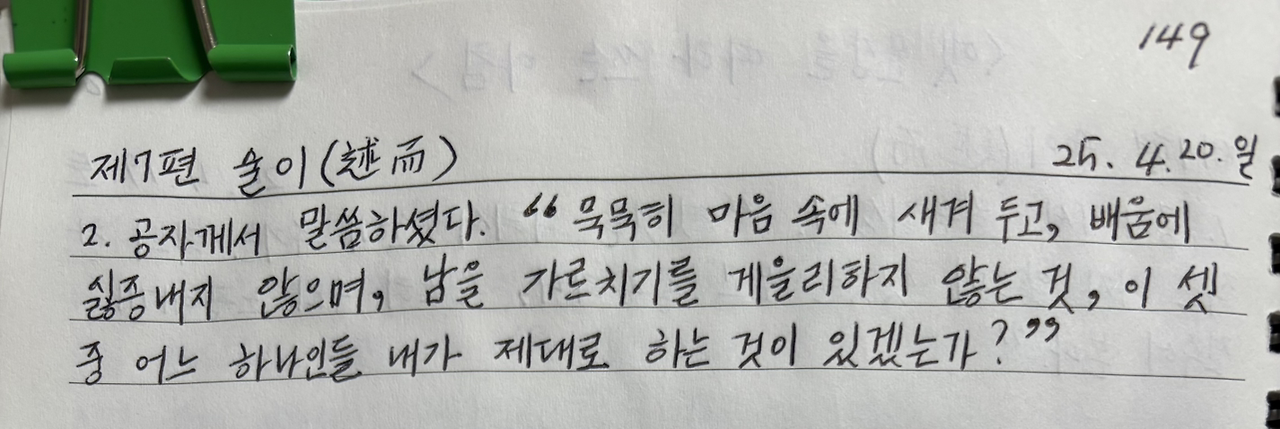 149
제7편 술이(述而) 25. 4. 20. 일
2. 공자께서 말씀하셨다. “묵묵히 마음 속에 새겨 두고, 배움에
싫증내지 않으며, 남을 가르치기를 게을리하지 않는 것, 이 셋
중 어느 하나인들 내가 제대로 하는 것이 있겠는가?”